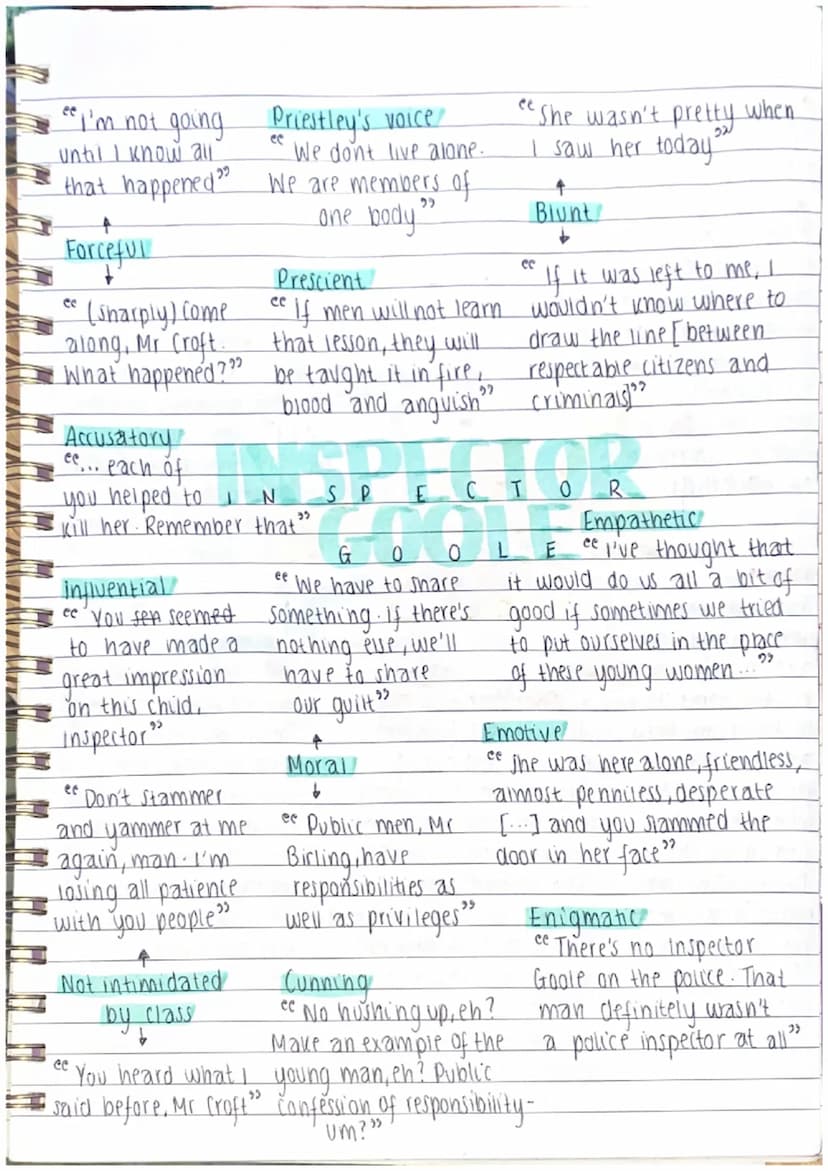 “I'm not going
until I know all
that happened”
Forceful
“(sharply) Come
along, Mr Croft.
What happened?”
Priestley's voice
“We dont live alone.
We are members of
one body”
Prescient
“If men will not learn
that lesson, they will
be taught it in fire,
blood and anguish”
“She wasn't pretty when
I saw her today”
Blunt
“If it was left to me, I
wouldn't know where to
draw the line [between
respectable citizens and
criminals]”
Accusatory
“... each of
you helped to
kill her. Remember that”
INSPECTOR
GOOLE
INSPECTOR
GOOLE
Influential
“You sen seemed
to have made a
great impression
on this child,
Inspector”
“We have to share
something. If there's
nothing else, we'll
have to share
our guilt”
Moral
“Public men, Mr
Birling, have
responsibilities as
well as privileges”
Empathetic
“I've thought that
it would do us all a bit of
good if sometimes we tried
to put ourselves in the place
of these young women...”
Emotive
“She was here alone, friendless,
almost penniless, desperate
[...] and you slammed the
door in her face”
“Don't stammer
and yammer at me
again, man. I'm
losing all patience
with you people”
Not intimidated
by class
“You heard what I
said before, Mr Croft”
Cunning
“No hushing up, eh?
Make an example of the
young man, eh? Public
confession of responsibility-
um?”
Enigmatic
“There's no Inspector
Goole on the police. That
man definitely wasn't
a police inspector at all”